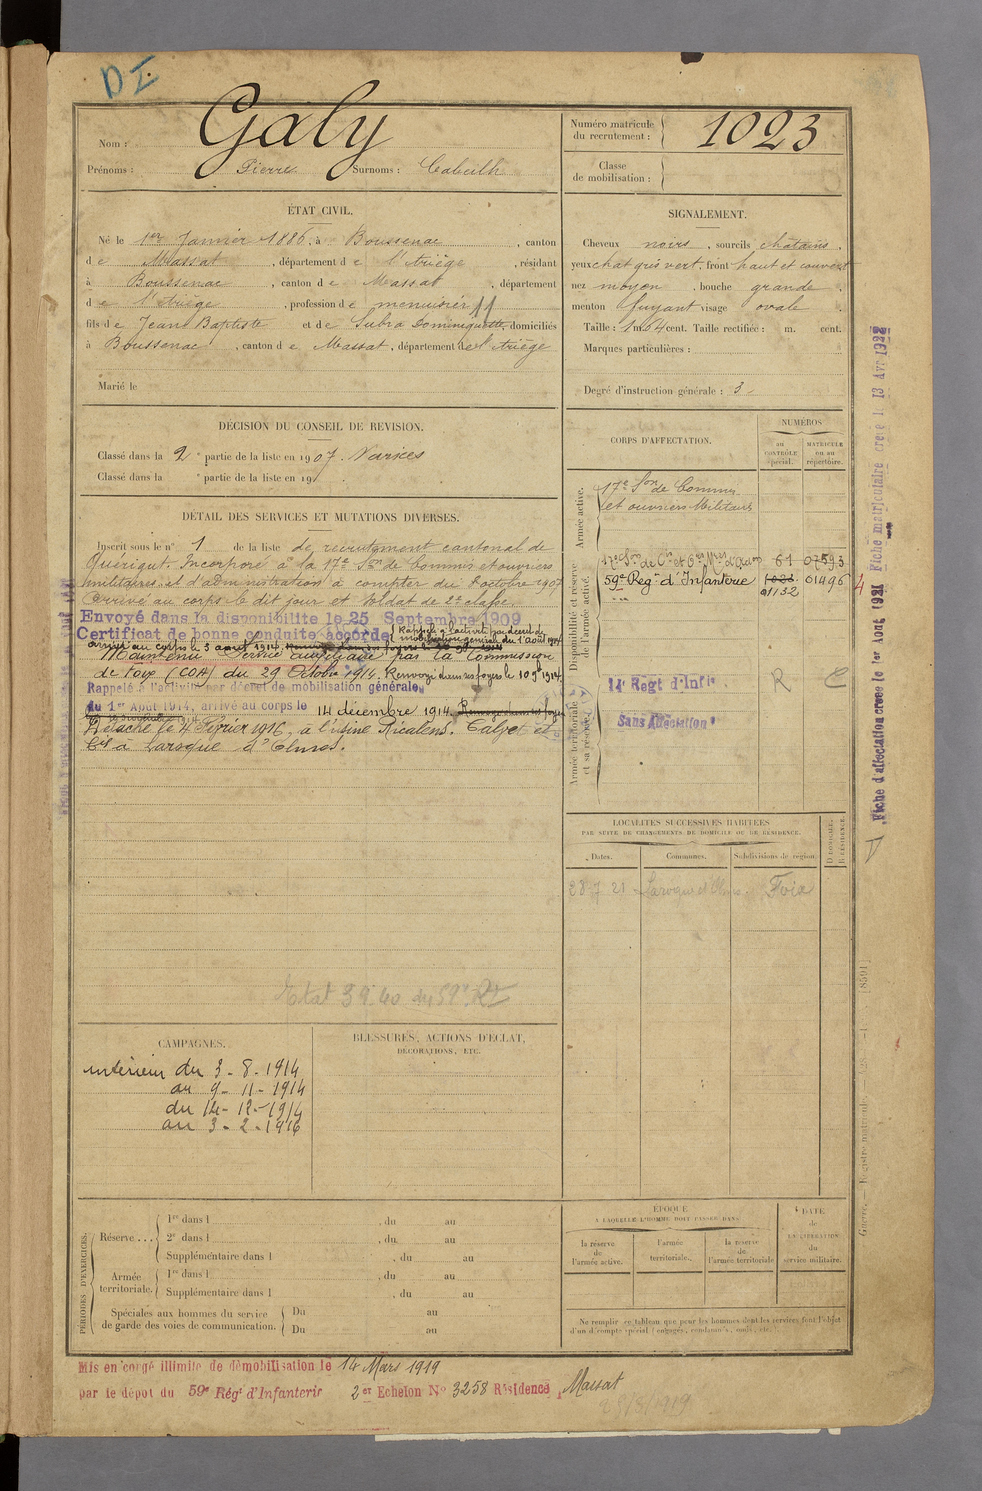 D I
Nom : Galy
Prénoms : Pierre Surnoms : Cabeilh
Numéro matricule
du recrutement : 1023
Classe
de mobilisation :
ÉTAT CIVIL.
Né le 1er Janvier 1886, à Boussenac, canton
de Massat, département de l'Ariège, résidant
à Boussenac, canton de Massat, département
de l'Ariège, profession de menuisier
fils de Jean Baptiste et de Subra Dominiquette, domiciliés
à Boussenac, canton de Massat, département de l'Ariège
Marié le
SIGNALEMENT.
Cheveux noirs, sourcils châtains,
yeux chat gris vert, front haut et couvert
nez moyen, bouche grande,
menton fuyant visage ovale.
Taille : 1 m. 64 cent. Taille rectifiée : m. cent.
Marques particulières :
Degré d'instruction générale : 3
DÉCISION DU CONSEIL DE REVISION.
Classé dans la 2e partie de la liste en 1907. Varices
Classé dans la e partie de la liste en 19
DÉTAIL DES SERVICES ET MUTATIONS DIVERSES.
Inscrit sous le n° 1 de la liste de recrutement cantonal de
Quérigut. Incorporé à la 17e Son de Commis et ouvriers
militaires et d'administration à compter du 8 octobre 1907
Arrivé au corps le dit jour et soldat de 2e classe.
Envoyé dans la disponibilité le 25 Septembre 1909
Certificat de bonne conduite accordé Rappelé à l'activité par décret de
mobilisation générale du 1 août 1914
arrivé au corps le 3 août 1914.
Maintenu Service auxiliaire par la Commission
de Foix (COA) du 29 Octobre 1914. Renvoyé dans ses foyers le 10 9bre 1914.
Rappelé à l'activité par décret de mobilisation générale
du 1er Août 1914, arrivé au corps le 14 décembre 1914.
Détaché le 4 Février 1916, à l'usine Ricalens. Calzet et
Cie à Laroque d'Olmes.
Etat 39.40 du 59e RI
CORPS D'AFFECTATION.
NUMÉROS
au
CONTRÔLE
spécial.
MATRICULE
ou au
répertoire.
Armée active.
17e Son de Commis
et ouvriers Militaires
Disponibilité et réserve
de l'armée active.
17e Son de Cis et Ors Mres d'Adon 61 07593
59e Reg. d'Infanterie 1023 01496 4
01132
Armée territoriale
et sa réserve.
14 Régt d'Infie R C
Sans Affectation
LOCALITÉS SUCCESSIVES HABITÉES
PAR SUITE DE CHANGEMENTS DE DOMICILE OU DE RÉSIDENCE.
Dates. Communes. Subdivisions de région.
D DOMICILE.
R RÉSIDENCE.
28 7 21 Laroque d'Olmes Foix
CAMPAGNES.
intérieur du 3-8-1914
au 9-11-1914
du 14-12-1914
au 3-2-1916
BLESSURES, ACTIONS D'ÉCLAT,
DÉCORATIONS, ETC.
PÉRIODES D'EXERCICES.
Réserve ...
1re dans l , du au
2e dans l , du au
Supplémentaire dans l , du au
Armée
territoriale.
1re dans l , du au
Supplémentaire dans l , du au
Spéciales aux hommes du service
de garde des voies de communication.
Du au
Du au
ÉPOQUE
À LAQUELLE L'HOMME DOIT PASSER DANS
la réserve
de
l'armée active.
l'armée
territoriale.
la réserve
de
l'armée territoriale
DATE
de
LA LIBÉRATION
du
service militaire.
Ne remplir ce tableau que pour les hommes dont les services font l'objet
d'un décompte spécial (engagés, condamnés, omis, etc.)
Mis en congé illimité de démobilisation le 14 Mars 1919
par le dépôt du 59e Régt d'Infanterie 2er Echelon N° 3258 Résidence Massat
28/8/1919
Fiche d'affectation créée le 1er Août 1921 Fiche matriculaire créée le 13 Avr 1922